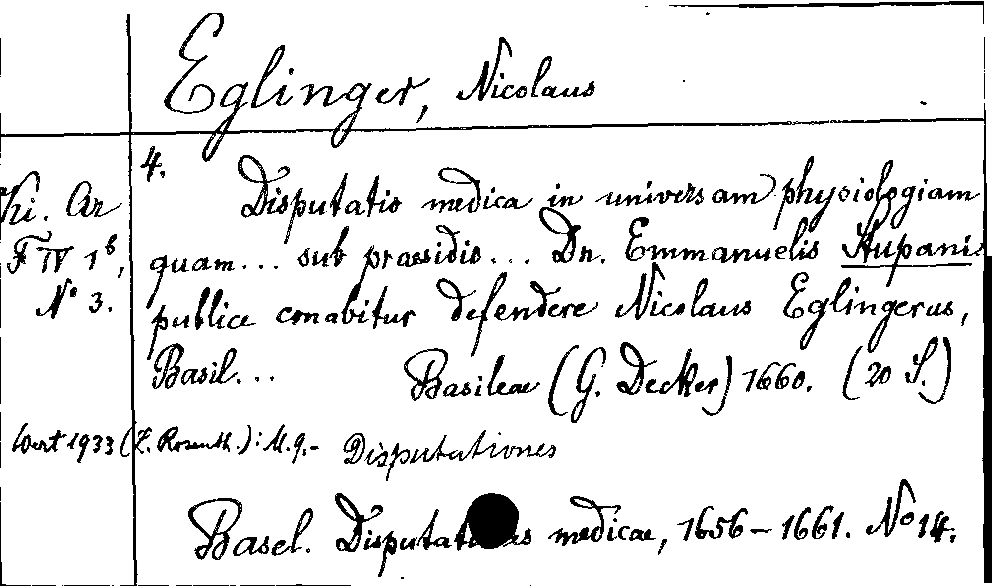 Eglinger, Nicolaus
4.
Disputatio medica in universam physiologiam
Ki. Ar
F IV 1b,
No 3.
quam... sub praesidio... Dn. Emmanuelis Stupanis
publice conabitur defendere Nicolaus Eglingerus,
Basil... Basileae (G. Decker) 1660. (20 S.)
Wert 1933 (L. Rosenth.): M. 9.- Disputationes
Basel. Disputationes medicae, 1656-1661. No 14.